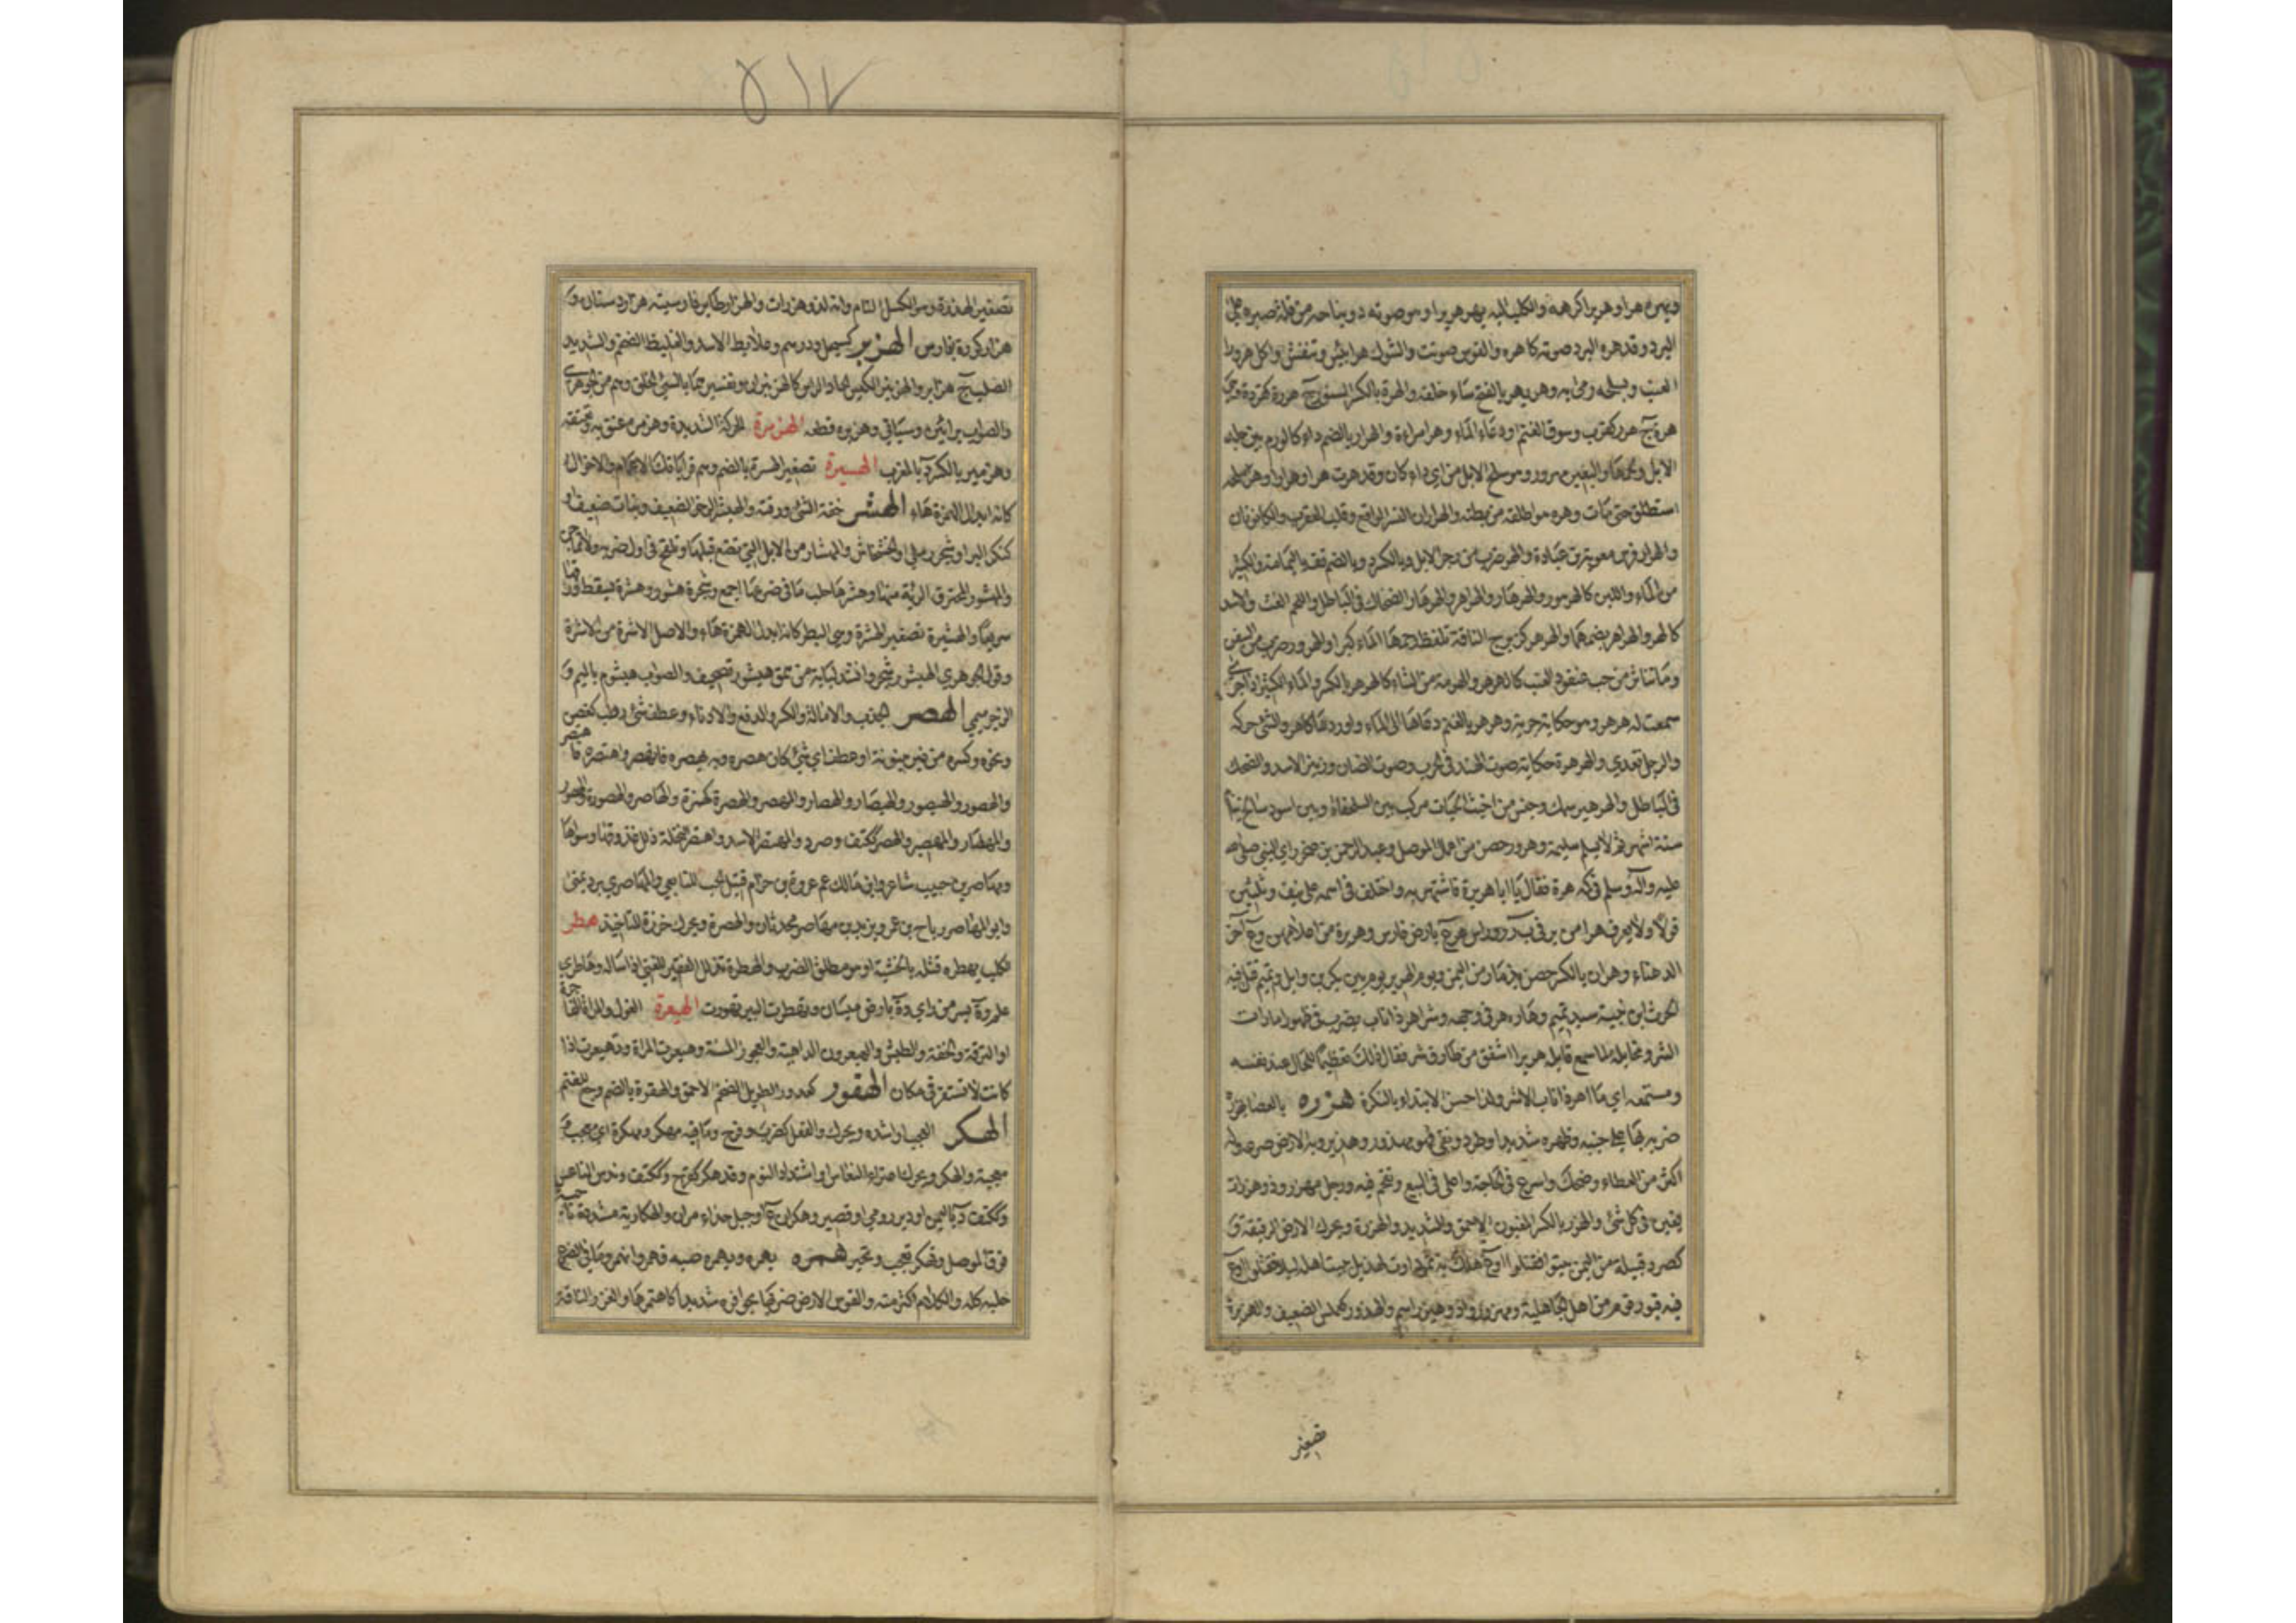 ويهره هرا وهريرا كرهه والكلب اليه يهر هريرا وهو صوته دون نباحه من قلة صبره على
البرد وقد هره البرد صوته كاهره والقوس صوتت والشوك هرا يبس وتنفش واكل هرور
العنب وبسلحه ورمى به وهر يهر بالفتح ساء خلقه والهرة بالكسر السنور ج هررة كقردة وهي
هرة ج هرر كقرب وسوق الغنم او دعاء الماء وهرا مراءة والهرار بالضم داء كالورم بين جلد
الابل ولحمها والبعير مهرور وهو سلح الابل من اي داء كان وقد هرت هرا وهرارا وهر سلحه
استطلق حتى مات وهره هو اطلقه من بطنه والهراران النسر الواقع وقلب العقرب والكانونان
والهرار فرس معوية بن عبادة والهر ضرب من زجر الابل وبالكسر د وبالضم قف باليمامة والكثير
من الماء واللبن كالهرهور والهرهار والهراهر والهرهار الضحاك في الباطل واللحم الغث والاسد
كالهر والهراهر بضمهما والهرهر كزبرج الناقة تلفظ رحمها الماء كبرا والهرور ضرب من السفن
وما تناثر من حب عنقود العنب كالهرهر والهرمة من الشاء كالهرهر بالكسر والماء الكثير اذا جرى
سمعت له هرهر وهو حكاية جريه وهرهر بالغنم دعاها الى الماء واوردها كاهر والشئ حركه
والرجل تعدى والهرهرة حكاية صوت الهند في الحرب وصوت الضان وزئير الاسد والضحك
في الباطل والهرهير سمك وجنس من اخبث الحيات مركب بين السلحفاة وبين اسود سالخ ينام
ستة اشهر ثم لا يسلم سليمه وهرور حصن من اعمال الموصل وعبد الرحمن بن صخر راى النبي صلى الله
عليه وآله وسلم في كمه هرة فقال يا ابا هريرة فاشتهر به واختلف في اسمه على نيف وثلثين
قولا ولا يعرف هرا من بر في ب ر ر وراس هر ع بارض فارس وهريرة من اعلامهن وع آخر
الدهناء وهران بالكسر حصن بذمار من اليمن ويوم الهرير يوم بين بكر بن وايل وتميم قتل فيه
الحرث بن بيبة سيد تميم وهاره هر في وجهه وشر اهر ذا ناب يضرب في ظهور امارات
الشر ومخايله لما سمع قايله هريرا اشفق من طارق شر فقال ذلك تعظيما للحال عند نفسه
ومستمعه اي ما اهر ذا ناب الا شر ولذا حسن الابتداء بالنكرة هزره بالعصا يهزره
ضربه بها على جنبه وظهره شديدا وطرد ونفى فهو مهزور وهزير وبه الارض صرعه وله
اكثر من العطاء وضحك واسرع في الحاجة واغلى في البيع وتقحم فيه ورجل مهزر وذو هزرات
يغبن في كل شئ والهزر بالكسر المغبون الاحمق والشديد والهزرة ويحرك الارض الرقيقة و
كصرد قبيلة من اليمن بيتوا فقتلوا او ع هلك به ثمود او ت لهذيل بيت اهله ليلا فقتلوا او ع
فيه قبور قوم من اهل الجاهلية ومهزور واد وهيزر اسم والهزور كعملس الضعيف والهزيرة
تصغير
تصغير الهزرة وهو الكسل التام وانه لذو هزرات والهزار طاير فارسيته هزار دستان و
هزار كورة بفارس الهزبر كسبحل ودرهم وعلابط الاسد والغليظ الضخم والشديد
الصلب ج هزابر والهزنبر الكيس الحاد الراس كالهزنبران وتفسيرهما بالسئ الخلق وهم من الجوهري
والصواب بزائين وسياتي وهزبره قطعه الهزمرة الحركة الشديدة وهزمره عنف به وتعتعه
وهزمير بالكسر د بالمغرب الهسيرة تصغير الهسرة بالضم وهم قراباتك الاعمام والاخوال
كانه ابدال الهمزة هاء الهشر خفة الشئ ورقته والهيشر الرخو الضعيف ونبات ضعيف او
كنكر البر او شجر رملي او الخشخاش والمهشار من الابل التي تضع قبلها وتلقح في اول ضربه ولا تماجن
والمهشور المحترق الرئة منها وهشرها حلب ما في ضرعها اجمع وشجرة هشور وهشرة يسقط ورقها
سريعا والهشيرة تصغير الهشرة وهي البطر كانه ابدل الهمزة هاء والاصل الاشرة من الاشرة
وقول الجوهري الهيشور شجر وانشد لباية من همق هيشور تصحيف والصواب هيشوم بالميم و
الرجز ميمي الهصر الجذب والامالة والكسر والدفع والادناء وعطف شئ رطب كغصن
ونحوه وكسره من غير بينونة او عطف اي شئ كان هصره وبه يهصره فانهصر واهتصره فاهتصر
والهصور والهيصور والهيصار والهصار والمهصر والهصرة كهمزة والهاصر والهصورة والهصر
والمهصار والمهصير والهصر ككتف وصرد والمهتصر الاسد واهتصر النخلة ذلل عذوقها وسواها
ومهاصر بن حبيب شاعر وابن مالك عم عروة بن حزام قتيل الحب التابعي والمهاصري برد يمني
وابو المهاصر رياح بن عمر ويزيد بن مهاصر محدثان والهصرة ويحرك خرزة للتاخيذ هطر
الكلب يهطره قتله بالخشبة او هو مطلق الضرب والهطرة تذلل الفقير للغني اذا ساله وهاطرى
علم وة بسر من راى وة بارض ميسان وتهطرت البير تهورت الهيعرة الغول والمراة الفاجرة
او النزقة والخفة والطيش والهيعرون الداهية والعجوز المسنة وهيعرت المراة وتهيعرت اذا
كانت لا تستقر في مكان الهقور كهدور الطويل الضخم الاحمق والهقرة بالضم وجع للغنم
الهكر العجب او اشده ويحرك والفعل كضرب وفرح وما فيه مهكر ومهكرة اي معجب و
معجبة والهكر ويحرك اعتراء النعاس او اشتداد النوم وقد هكر كفرح وككتف وندس الناعس
وككتف د باليمن او دير رومي او قصير وهكران ع او جبل حذاء مران والهكارية مشددة ناحية
فوق الموصل وتهكر تعجب وتحير همره يهمره ويهمره صبه فهمر وانهمر وما في الضرع
حلبه كله والكلام اكثر منه والفرس الارض ضربها بحوافره شديدا كاهتمرها والغزر الناقة